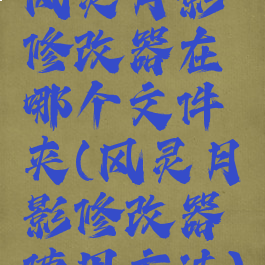 风灵月影
修改器在
哪个文件
夹(风灵月
影修改器